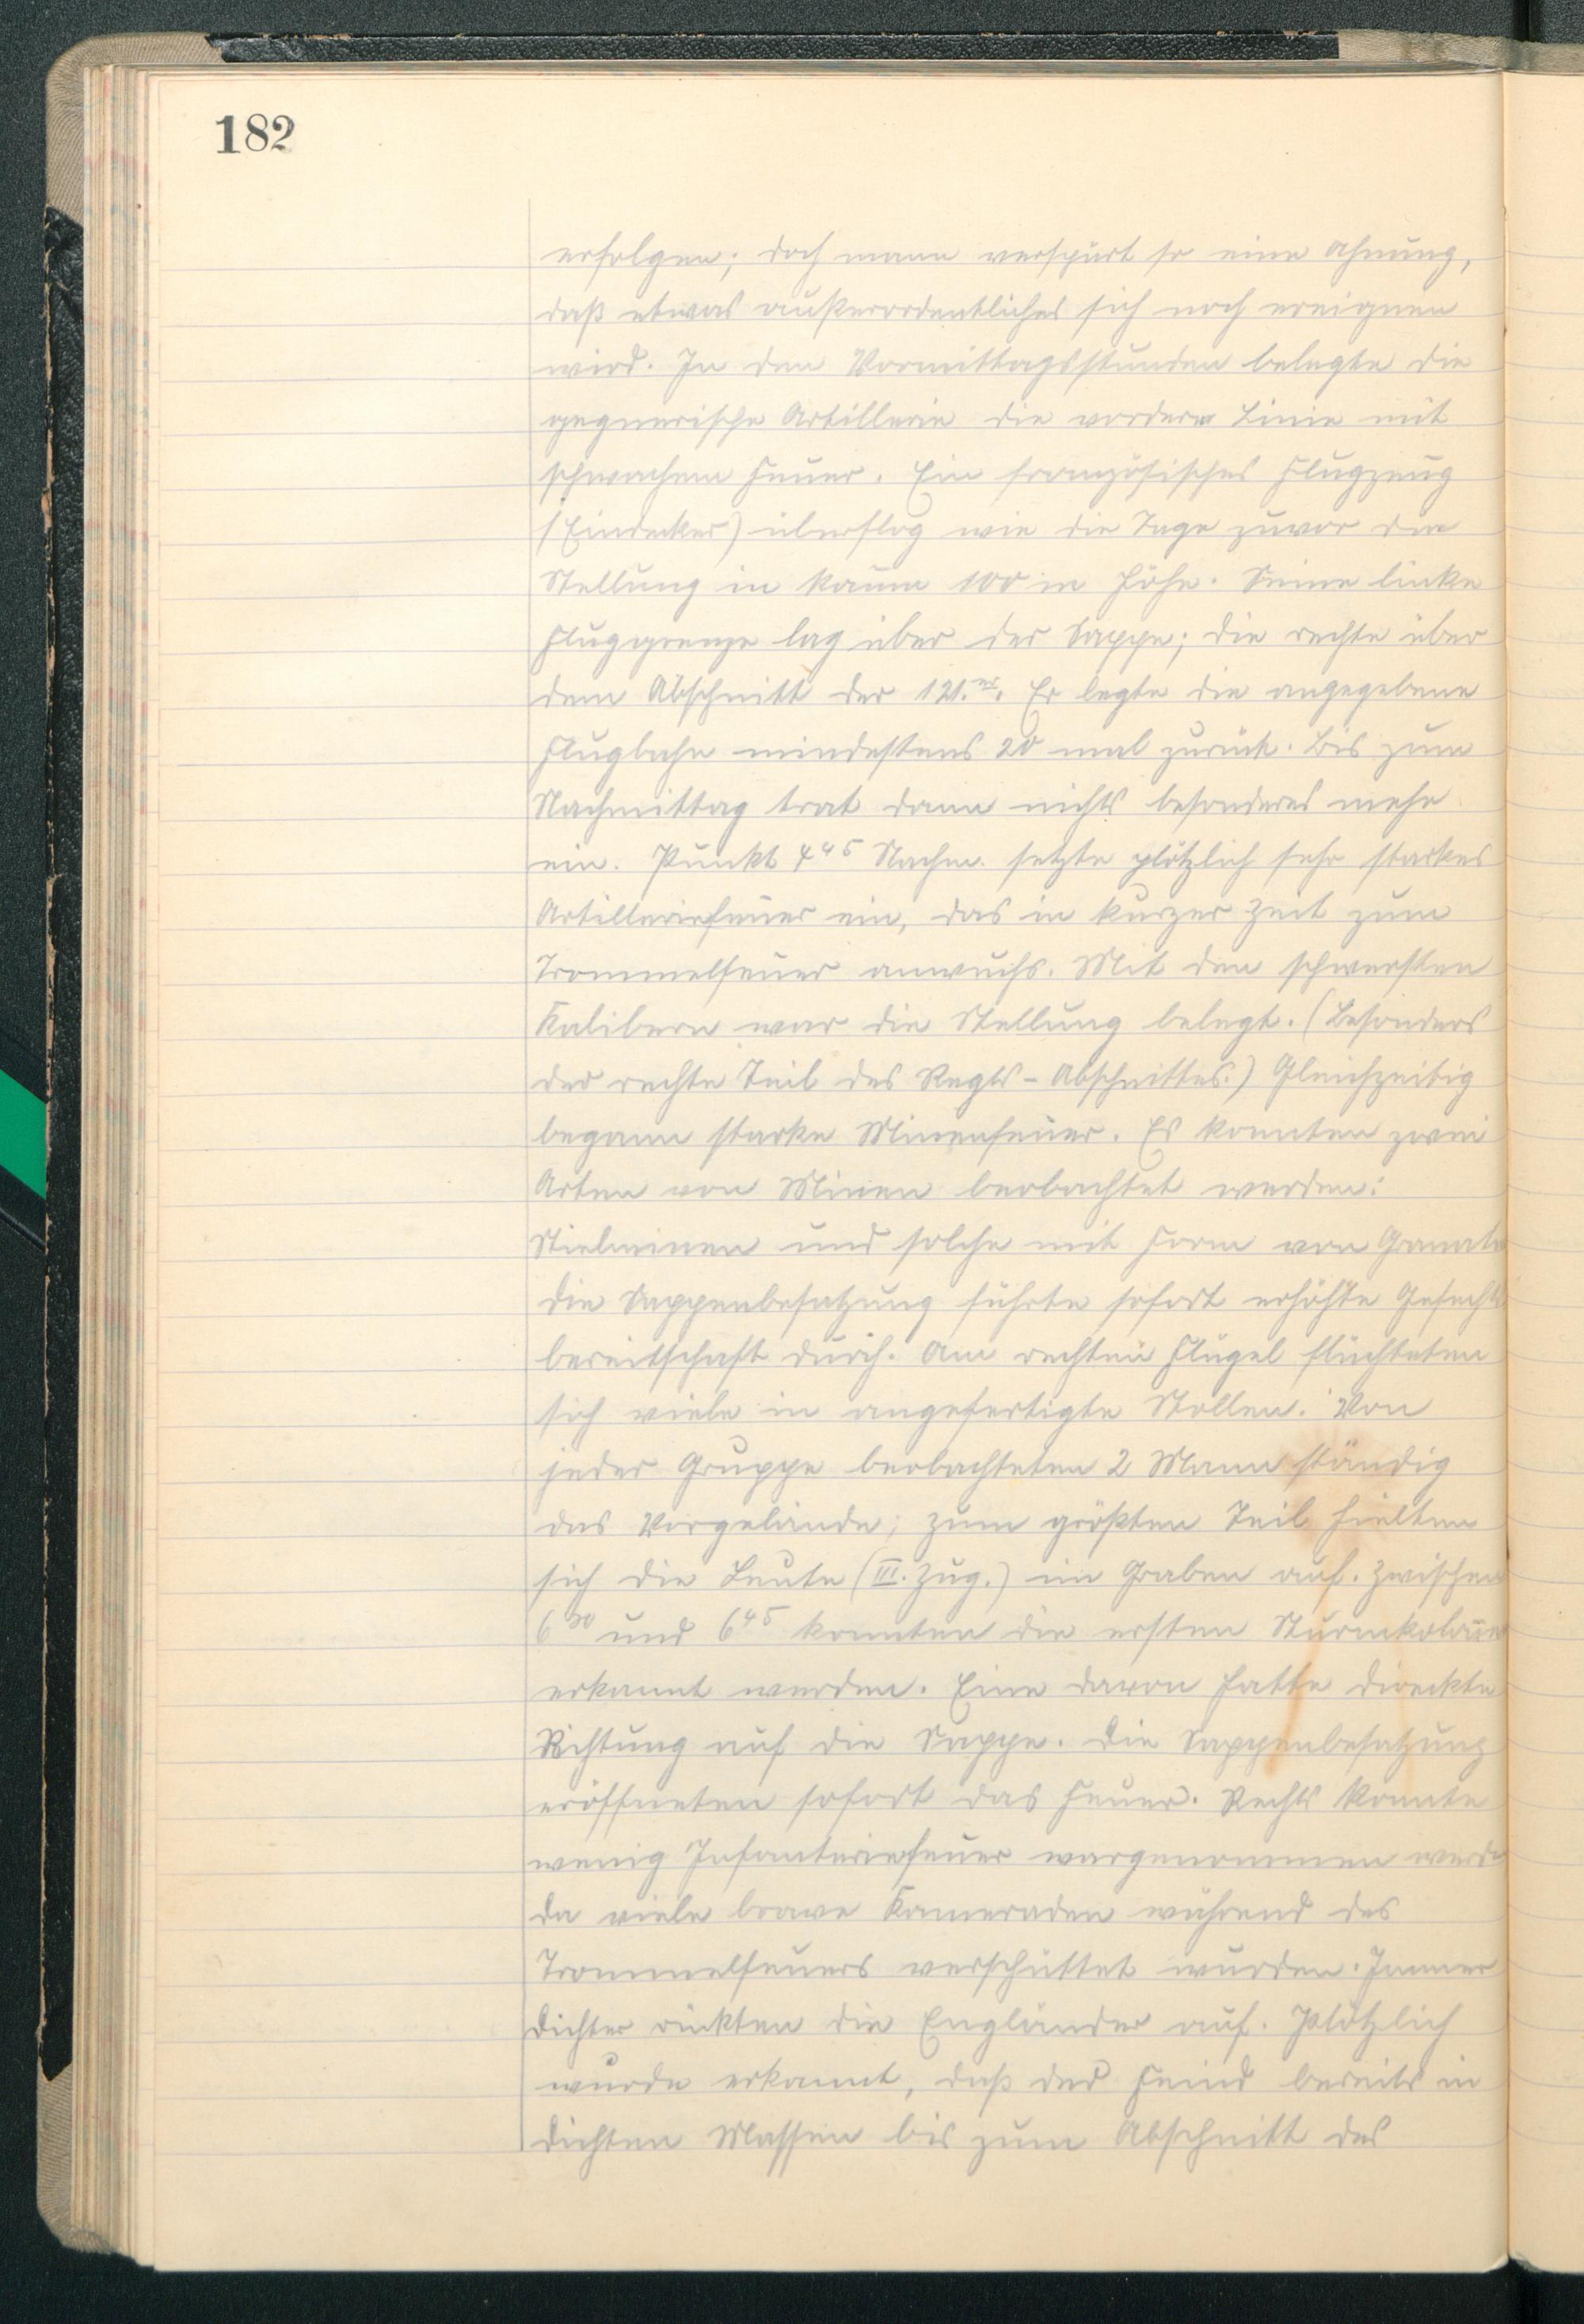 182
erfolgen; doch mann verspürt so eine Ahnung,
daß etwas außerordentliches sich noch ereignen
wird. In den Vormittagsstunden belegte die
gegnerische Artillerie die vordere Linie mit
schwachem Feuer. Ein französisches Flugzeug
(Eindecker) überflog wie die Tage zuvor die
Stellung in kaum 100 m Höhe. Seine linke
Fluggrenze lag über der Sappe; die rechte über
dem Abschnitt der 121.er. Er legte die angegebene
Flugbahn mindestens 20 mal zurück. Bis zum
Nachmittag trat dann nichts besonderes mehr
ein. Punkt 4 45 Nachm. setzte plötzlich sehr starkes
Artilleriefeuer ein, das in kurzer Zeit zum
Trommelfeuer anwuchs. Mit den schwersten
Kalibern war die Stellung belegt. (Besonders
der rechte Teil des Regts-Abschnittes.) Gleichzeitig
begann starke Minenfeuer. Es konnten zwei
Arten von Minen beobachtet werden:
Stielminen und solche mit Form von Granate
Die Sappenbesatzung führte sofort erhöhte Gefechts
bereitschaft durch. Am rechten Flügel flüchteten
sich viele in angefertigte Stollen. Von
jeder Gruppe beobachteten 2 Mann ständig
das Vorgelände; zum größten Teil hielten
sich die Leute (III. Zug.) im Graben auf. Zwischen
6 30 und 6 45 konnten die ersten Sturmkolonn̄
erkannt werden. Eine davon hatte direckte
Richtung auf die Sappe. Die Sappenbesatzung
eröffneten sofort das Feuer. Rechts konnte
wenig Infanteriefeuer wargenommen werde
da viele brave Kameraden während des
Trommelfeuers verschüttet wurden. Immer
dichter rückten die Engländer auf. Plötzlich
wurde erkannt, daß der Feind bereits in
dichten Massen bis zum Abschnitt des